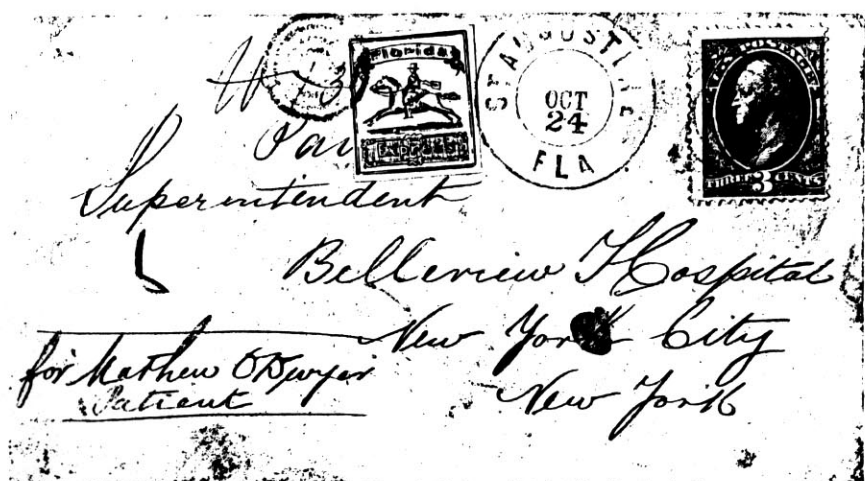 Florida
EXPRESS
ST. AUGUSTINE
OCT
24
FLA
U.S. POSTAGE
THREE 3 CENTS
Superintendent
Belleview Hospital
New York City
New York
for Mathew O Dwyer
Patient